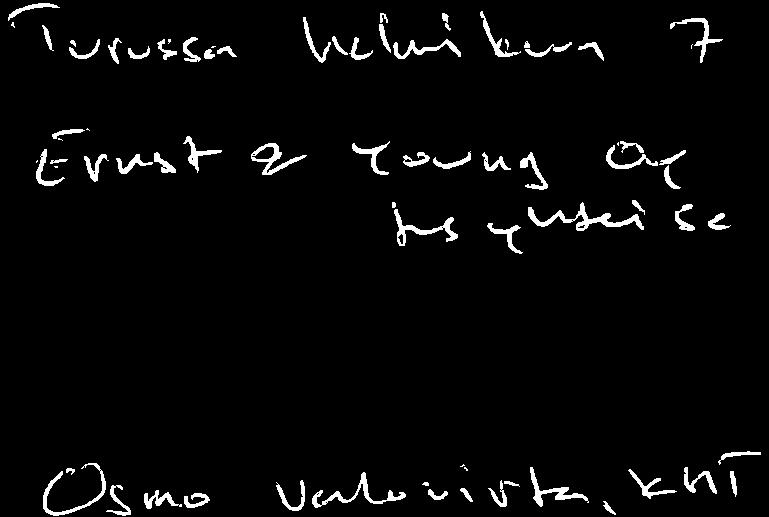 Turussa helmikuun 7
Ernst & Young Oy
tns yhteisö
Osmo Valovirta, KHT